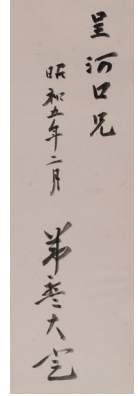 呈河口兄
昭和五年二月
弟秀大定